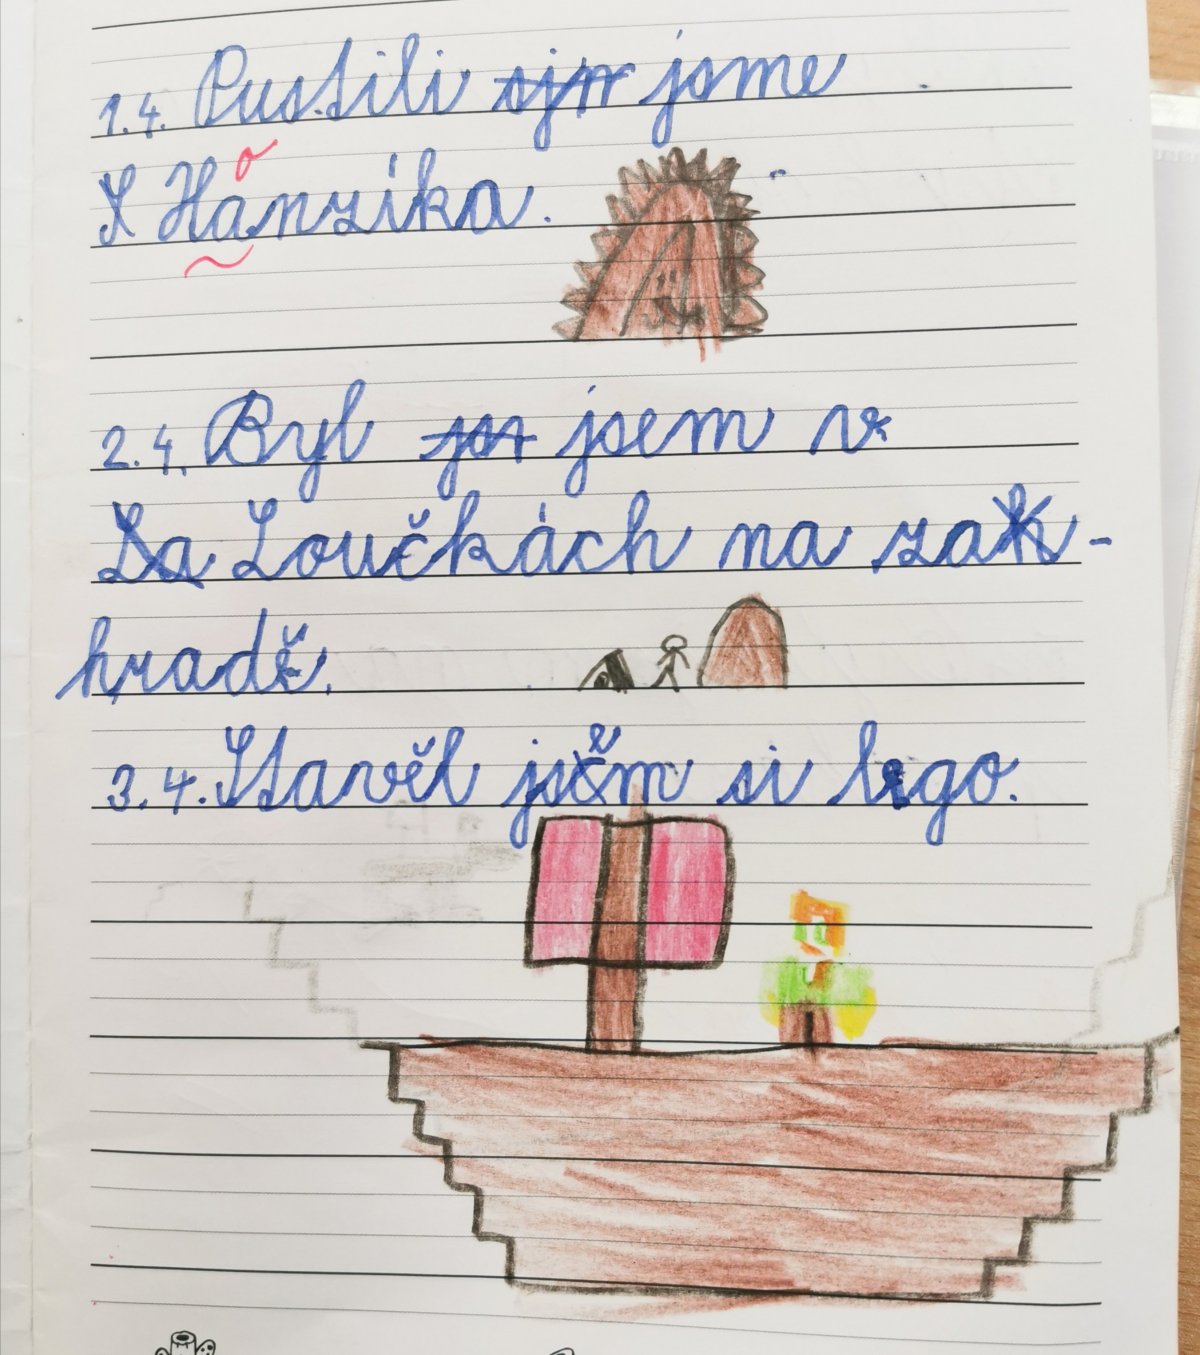 1.4. Pustili jsme
X Hanzíka.
2.4. Byl jsem v
Loučkách na za-
hradě.
3.4. Stavěl jsem si lego.